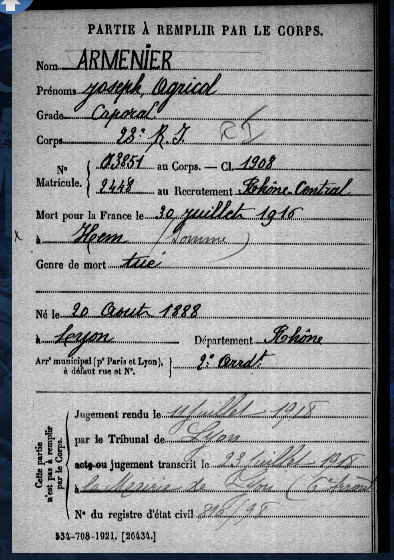 PARTIE À REMPLIR PAR LE CORPS.
Nom ARMENIER
Prénoms Joseph, Agricol
Grade Caporal
Corps 23e R.I. RI
No 03851 au Corps. — Cl. 1908
Matricule. 2448 au Recrutement Rhône Central
Mort pour la France le 30 juillet 1916
x à Hem (Somme)
Genre de mort tué
Né le 20 Aout 1888
à Lyon Département Rhône
Arrt municipal (pr Paris et Lyon), 2e Arrdt
à défaut rue et No.
Cette partie n'est pas à remplir par le Corps.
Jugement rendu le juillet 1918
par le Tribunal de Lyon
acte ou jugement transcrit le 23 juillet 1918
à la Mairie de Lyon
No du registre d'état civil
534-708-1921. [26434.]